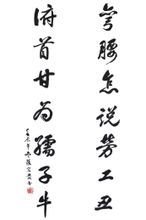 弯腰怎说劳工丑
俯首甘为孺子牛